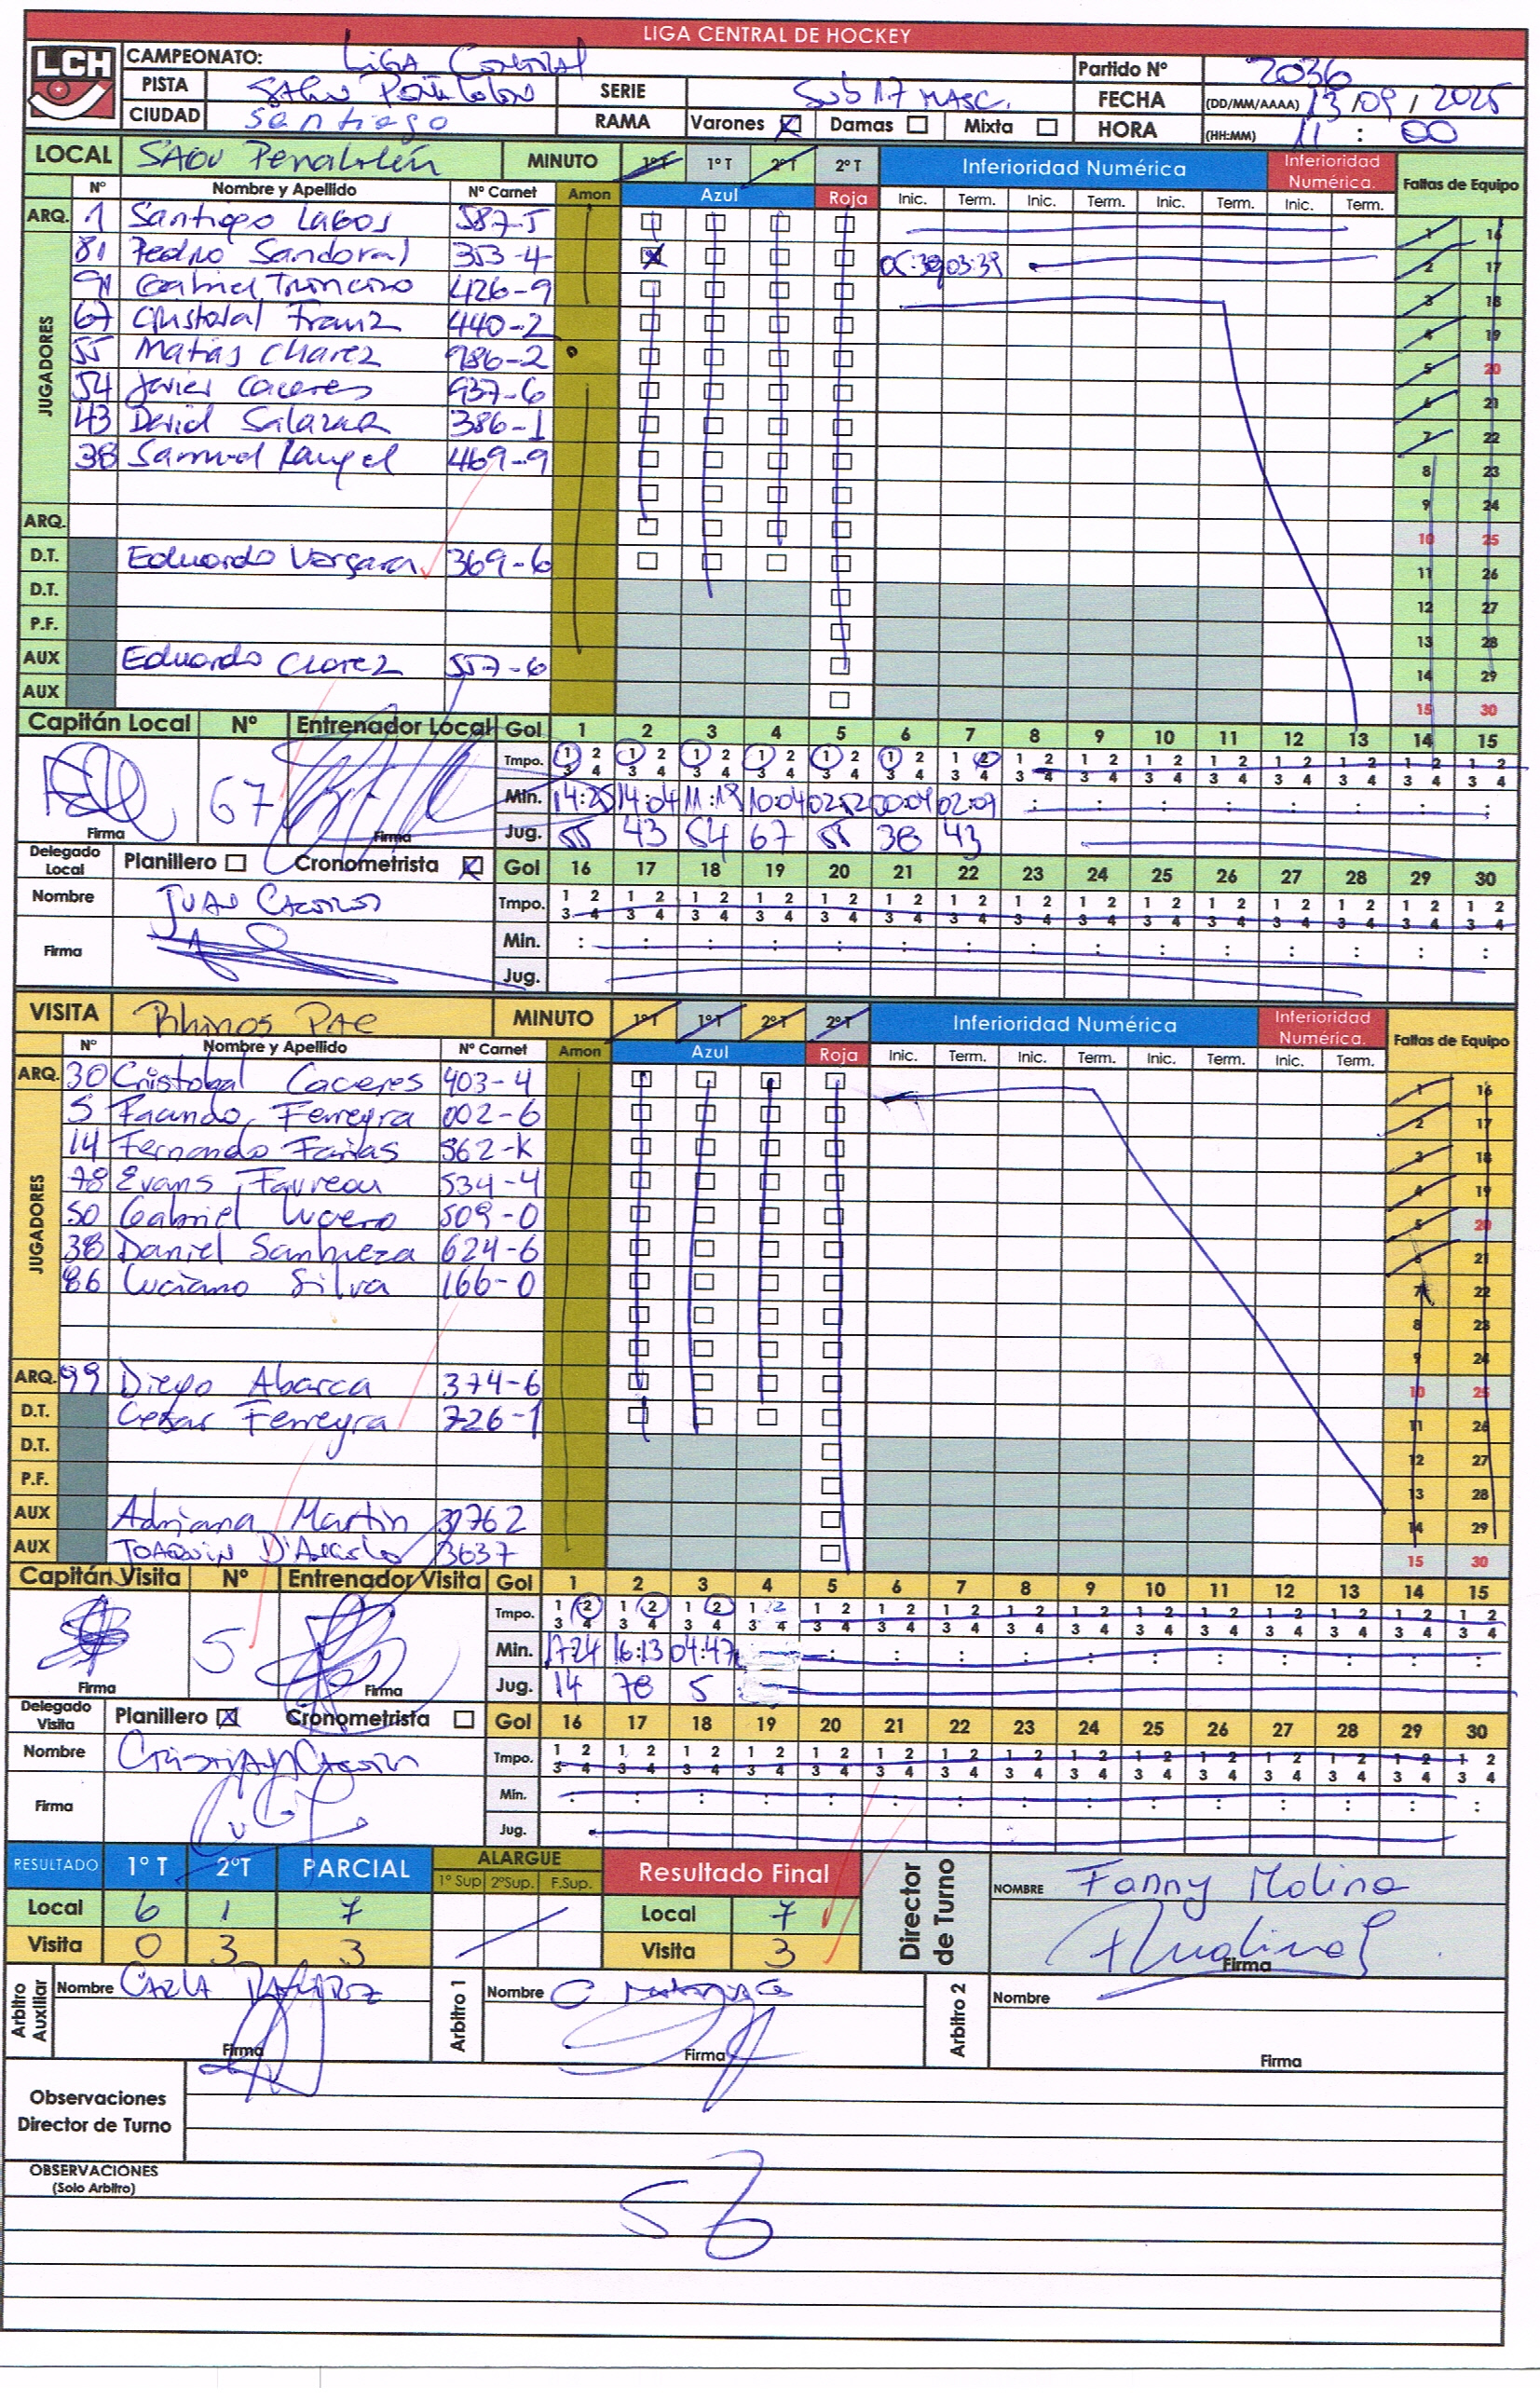 LIGA CENTRAL DE HOCKEY
LCH
CAMPEONATO: Liga Central
Partido Nº 2036
PISTA SAGU Peñalolen SERIE Sub 17 MASC.
FECHA (DD/MM/AAAA) 13/09/2025
CIUDAD Santiago RAMA Varones Damas Mixta
HORA (HH:MM) 11:00
LOCAL SAGU Penalolén MINUTO 1ºT 1º T 2ºT 2º T Inferioridad Numérica Inferioridad Numérica. Faltas de Equipo
Nº Nombre y Apellido Nº Carnet Amon Azul Roja Inic. Term. Inic. Term. Inic. Term. Inic. Term.
ARQ. 1 Santiago Lagos 587-5 1 16
JUGADORES
81 Pedro Sandoval 353-4 X 03:39 2 17
91 Gabriel 426-9 3 18
67 Cristobal Franz 440-2 4 19
55 Matias Chavez 986-2 5 20
54 Javier Caceres 937-6 6 21
43 David Salazar 386-1 7 22
38 Samuel Rangel 469-9 8 23
9 24
ARQ. 10 25
D.T. Eduardo Vergara 369-6 11 26
D.T. 12 27
P.F. 13 28
AUX Eduardo Chavez 557-6 14 29
AUX 15 30
Capitán Local Nº Entrenador Local Gol 1 2 3 4 5 6 7 8 9 10 11 12 13 14 15
Tmpo. 1 2 1 2 1 2 1 2 1 2 1 2 1 2 1 2 1 2 1 2 1 2 1 2 1 2 1 2 1 2
3 4 3 4 3 4 3 4 3 4 3 4 3 4 3 4 3 4 3 4 3 4 3 4 3 4 3 4 3 4
67 Min. 14:25 14:04 11:18 10:04 02:52 00:04 02:09
Firma Firma Jug. 55 43 54 67 55 38 43
Delegado Local Planillero Cronometrista X Gol 16 17 18 19 20 21 22 23 24 25 26 27 28 29 30
Nombre Juan Caceres Tmpo. 1 2 1 2 1 2 1 2 1 2 1 2 1 2 1 2 1 2 1 2 1 2 1 2 1 2 1 2 1 2
3 4 3 4 3 4 3 4 3 4 3 4 3 4 3 4 3 4 3 4 3 4 3 4 3 4 3 4 3 4
Firma Min.
Jug.
VISITA Rhinos PAC MINUTO 1ºT 1ºT 2ºT 2ºT Inferioridad Numérica Inferioridad Numérica. Faltas de Equipo
Nº Nombre y Apellido Nº Carnet Amon Azul Roja Inic. Term. Inic. Term. Inic. Term. Inic. Term.
ARQ. 30 Cristobal Caceres 403-4 1 16
JUGADORES
5 Facundo Ferreyra 002-6 2 17
14 Fernando Farias 862-K 3 18
78 Evans Favreau 534-4 4 19
50 Gabriel Lucero 509-0 5 20
38 Daniel Sanhueza 624-6 6 21
86 Luciano Silva 166-0 7 22
8 23
9 24
ARQ. 99 Diego Abarca 374-6 10 25
D.T. Cesar Ferreyra 726-1 11 26
D.T. 12 27
P.F. 13 28
AUX Adriana Martin 3762 14 29
AUX Joaquin 3637 15 30
Capitán Visita Nº Entrenador Visita Gol 1 2 3 4 5 6 7 8 9 10 11 12 13 14 15
Tmpo. 1 2 1 2 1 2 1 2 1 2 1 2 1 2 1 2 1 2 1 2 1 2 1 2 1 2 1 2 1 2
3 4 3 4 3 4 3 4 3 4 3 4 3 4 3 4 3 4 3 4 3 4 3 4 3 4 3 4 3 4
5 Min. 17:24 16:13 04:47
Firma Firma Jug. 14 78 5
Delegado Visita Planillero X Cronometrista Gol 16 17 18 19 20 21 22 23 24 25 26 27 28 29 30
Nombre Tmpo. 1 2 1 2 1 2 1 2 1 2 1 2 1 2 1 2 1 2 1 2 1 2 1 2 1 2 1 2 1 2
3 4 3 4 3 4 3 4 3 4 3 4 3 4 3 4 3 4 3 4 3 4 3 4 3 4 3 4 3 4
Firma Min.
Jug.
RESULTADO 1º T 2ºT PARCIAL ALARGUE Resultado Final Director de Turno NOMBRE Fanny Molina
1º Sup 2ºSup. F.Sup.
Local 6 1 7 Local 7
Visita 0 3 3 Visita 3 Firma
Arbitro Auxiliar Nombre Carla Ramirez Arbitro 1 Nombre Arbitro 2 Nombre
Firma Firma Firma
Observaciones
Director de Turno
OBSERVACIONES
(Solo Arbitro)